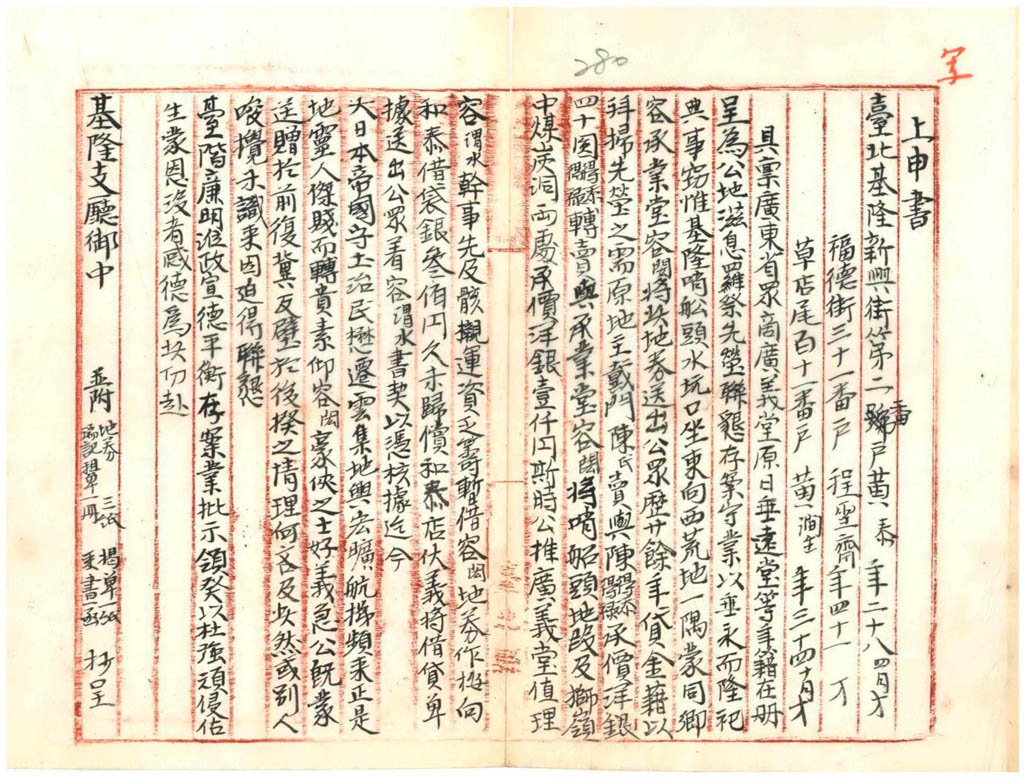 280
写
上申書
臺北基隆新興街第二番戶黃泰 年二十八四月才
福德街三十一番戶 程聖齋 年四十一 才
草店尾百十一番戶 黃澗生 年三十四十月才
具稟廣東省眾商廣義堂原日垂遠堂等年籍在冊
呈為公地滋息羅祭先塋聯懇存案守業以垂永而隆祀
典事竊惟基隆哨船頭水坑口坐東向西荒地一隅蒙同鄉
容承業堂容閎將地券送出公眾歷廿餘年貸金藉以
拜掃先塋之需原地主戴門陳氏賣與陳承價洋銀
四十圓轉賣與承業堂容閎將哨船頭地段及獅嶺
中煤炭洞兩處承價洋銀壹仟円斯時公推廣義堂值理
容渭水幹事先友骸櫬運資乏籌暫借容閎地券作按向
和泰借袋銀叄佰円久未歸償和泰店伙義將借貸單
據送出公眾着容渭水書契以憑核據迄今
大日本帝國守土治民懋遷雲集地輿宏曠航梯頻來正是
地靈人傑賤而轉貴素仰容閎豪俠之士好義急公既業
送贈於前復冀反璧於後揆之情理何言及此然或別人
唆攪未識來因迫得聯懇
臺階廉明涖政宣德平衡存案業批示領發以杜強頑侵佔
生蒙恩沒者感德為此切赴
基隆支廳御中
並附 地券 三紙 揭單一紙 抄呈